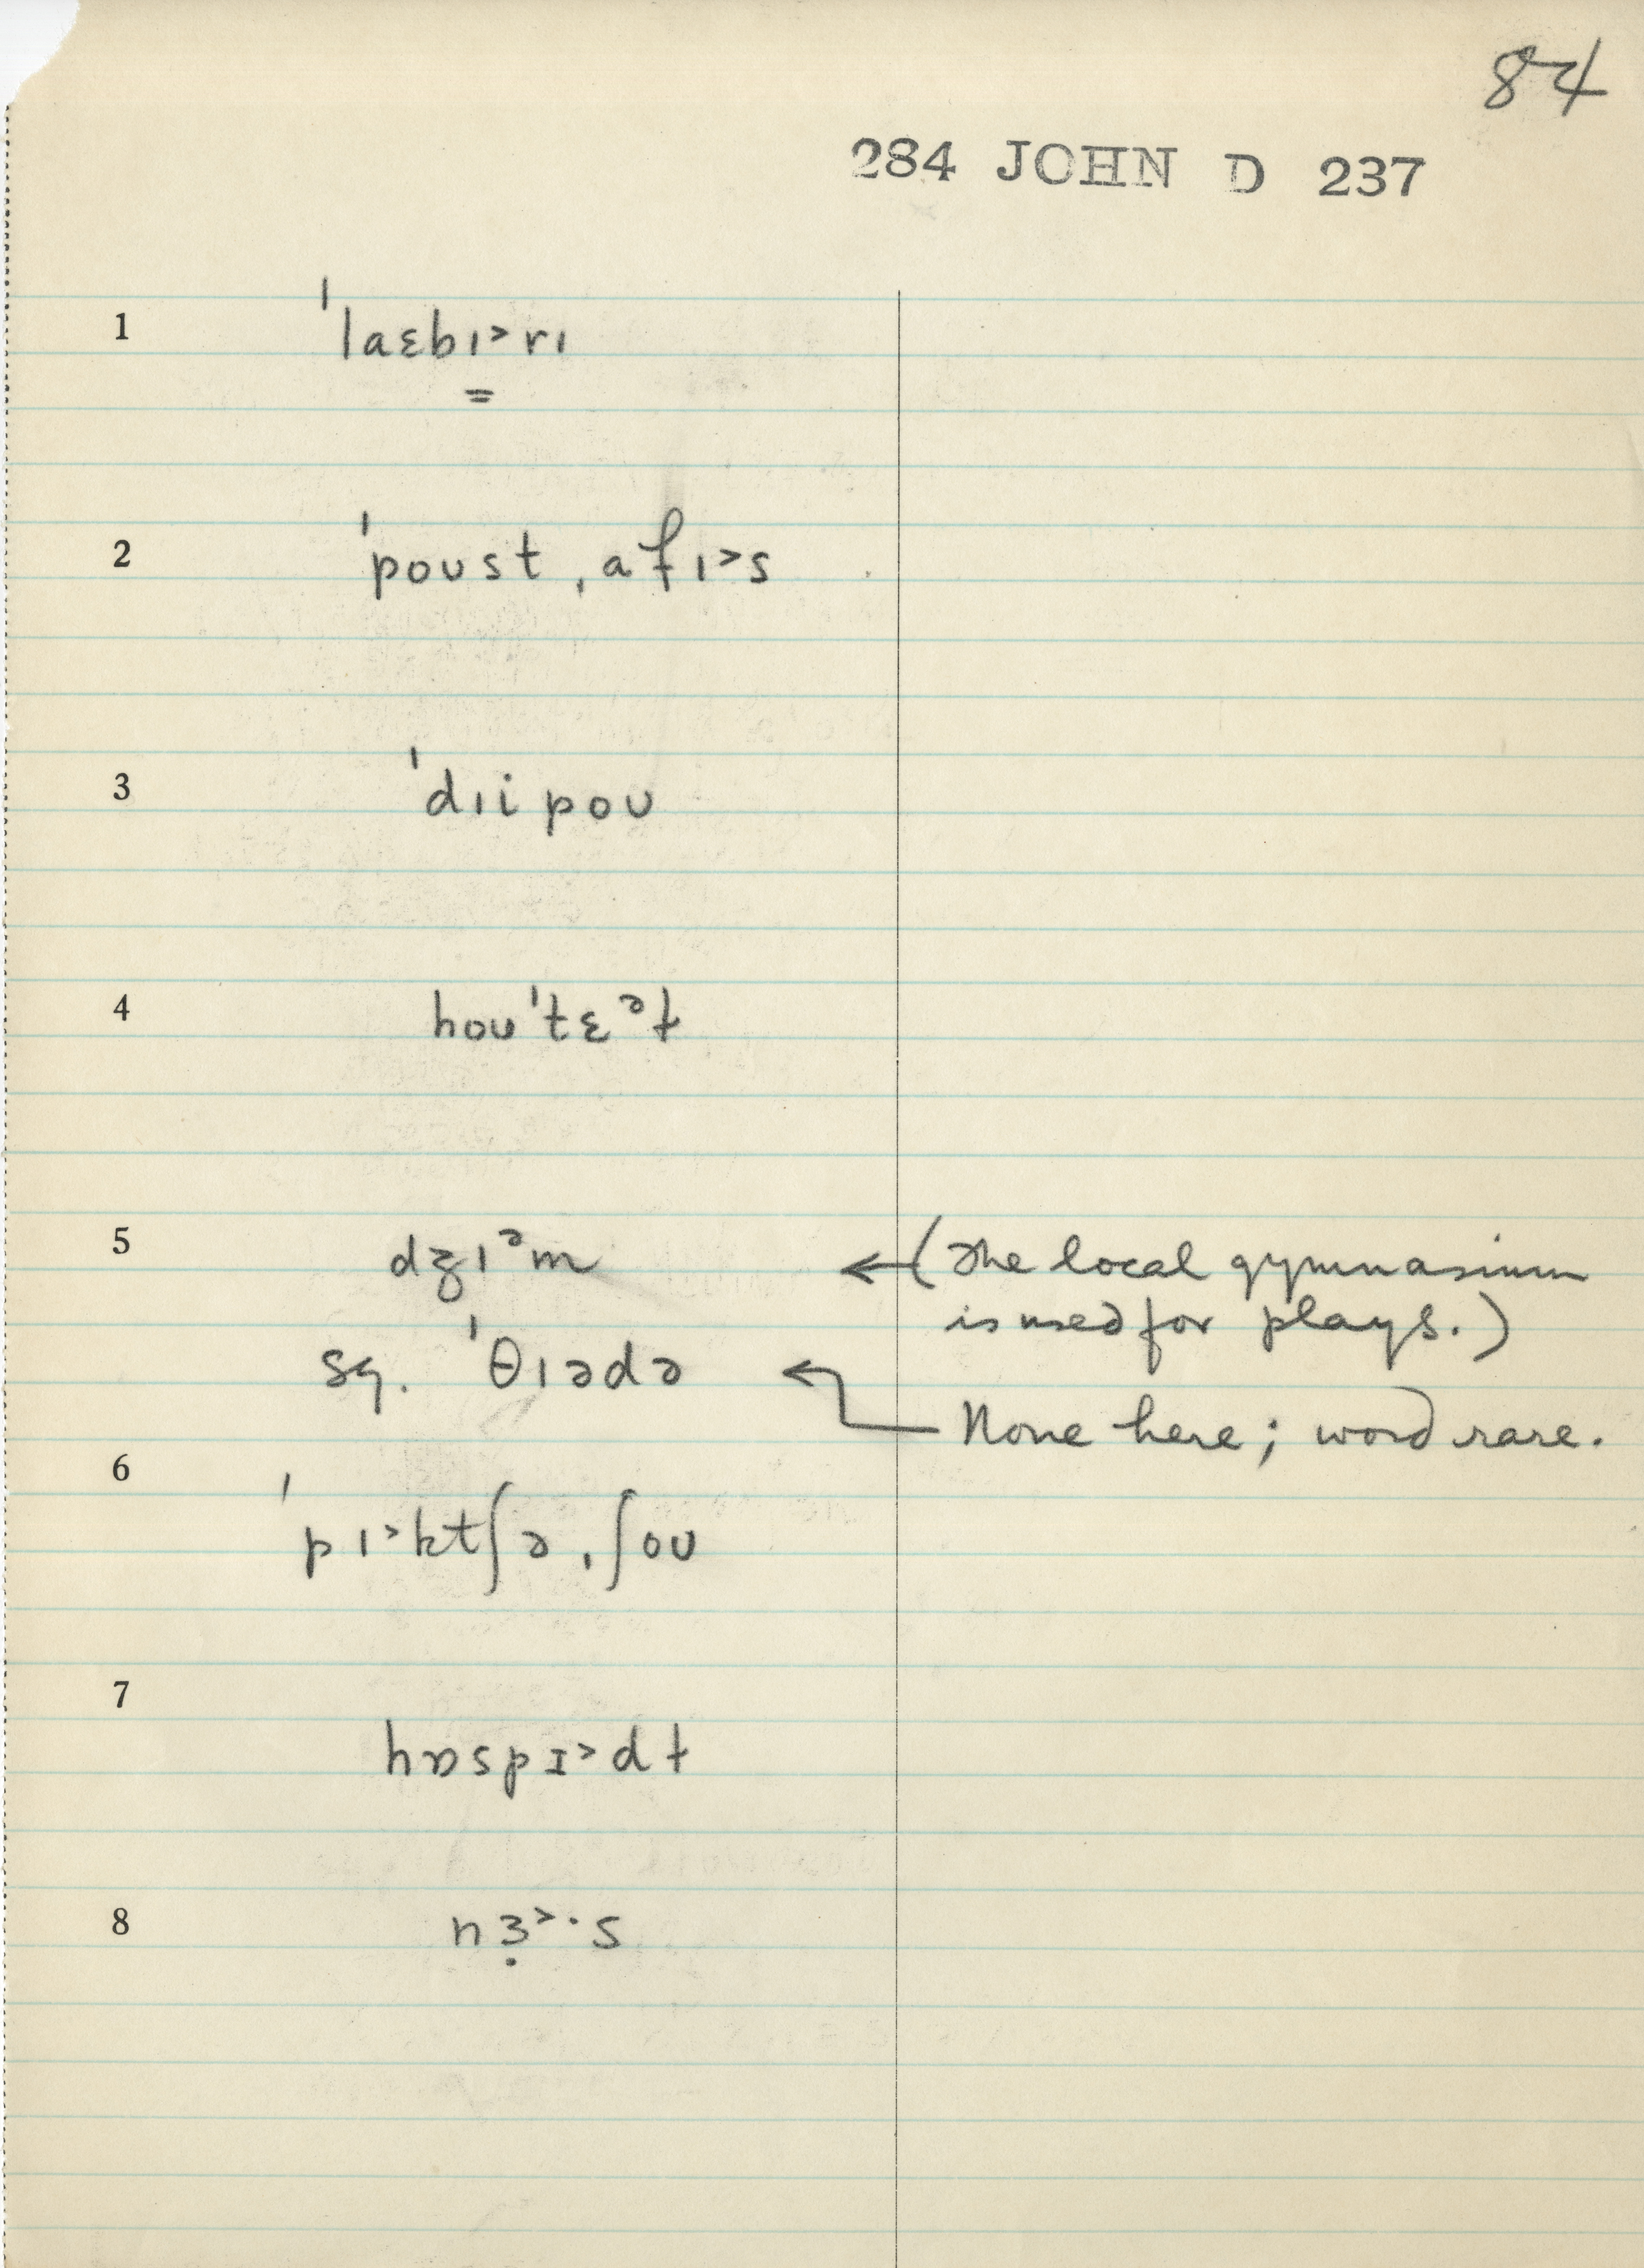 84
284 JOHN D 237
1 ˈlaɛbɪ˃rɪ
=
2 ˈpoust ˌafɪ˃s
3 ˈdɪi pou
4 hou ˈtɛᵊɫ
5 dʒɪᵊm ← (The local gymnasium
is used for plays.)
sq. ˈθɪədə ← None here; word rare.
6 ˈpɪ˃ktʃə ˌʃou
7 hɒspɪ˃dɫ
8 nɜ̣˃·s